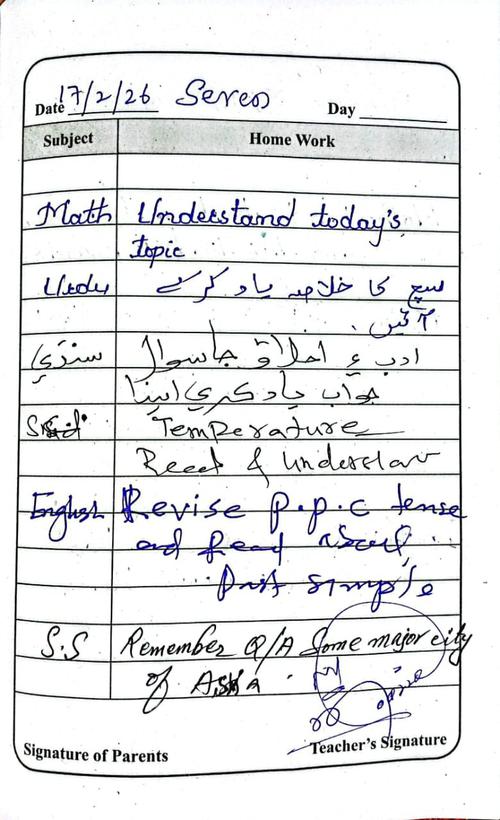 Date 17/2/26 Seven Day
Subject Home Work
Math Understand today's
topic.
Urdu سچ کا خلاصہ یاد کرکے
آئیں۔
سنڌي ادب ۽ اخلاق جا سوال
جواب ياد ڪري اينا
Temperature
Read & Understan
English Revise p.p.c tense
and Read
Past simple
S.S Remember Q/A Some major city
of Asia
Signature of Parents Teacher's Signature